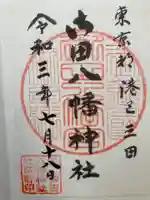 東京都港区三田
御田八幡神社
令和三年七月十八日